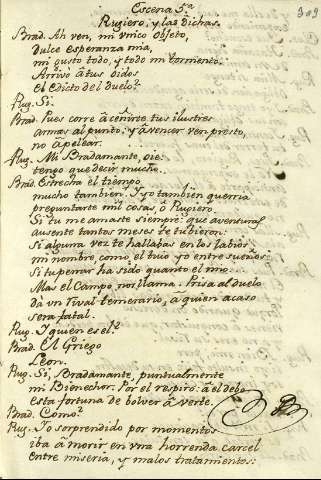 309
Escena 5.ª
Rugiero, y las dichas.
Brad. Ah ven, mi vnico objeto,
dulce esperanza mia,
mi gusto todo, y todo mi tormento.
Arrivo à tus oidos
el edicto del duelo?
Rug. Si.
Brad. Pues corre à ceñirte tus ilustres
armas al punto; y à vencer ven presto,
no à pelear.
Rug. Mi Bradamante, oie:
tengo que decir mucho.
Brad. Estrecha el tiempo
mucho tambien. Y yo tambien querria
preguntarte mil cosas, ô Rugiero,
Si tu me amaste siempre: que aventuras
ausente tantos meses te tubieron:
Si alguna vez te hallabas en los labios
mi nombre, como el tuio yo entre sueños:
Si tu penar ha sido quanto el mio...
Mas el Campo nos llama. Prisa al duelo
dà vn rival temerario, à quien acaso
sera fatal.
Rug. Y quien es el?
Brad. El Griego
Leon.
Rug. Si, Bradamante, puntualmente
mi Bienechor. Por el respiro: à el debo
esta fortuna de bolver à verte.
Brad. Como?
Rug. Yo sorprendido por momentos
iba à morir en vna horrenda carcel
entre miseria, y malos tratamientos: